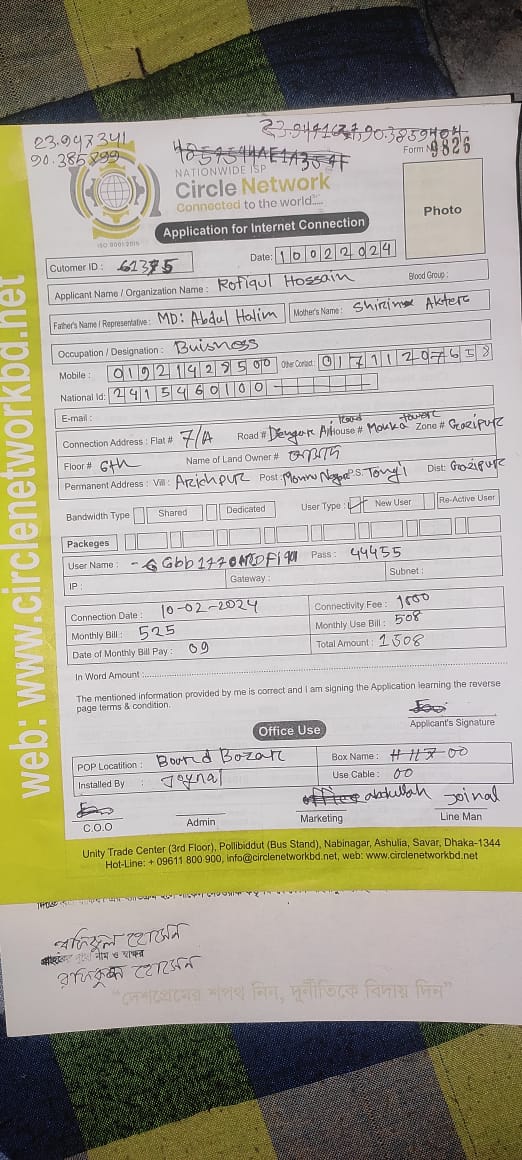 23.947341
90.385899
Form No 9826
NATIONWIDE ISP
Circle Network
Connected to the world....
ISO 9001:2015
Photo
Application for Internet Connection
Cutomer ID : 61375 Date: 10022024
Applicant Name / Organization Name : Rofiqul Hossain Blood Group :
Father's Name / Representative : MD: Abdul Halim Mother's Name : Shirina Akter
Occupation / Designation : Buisness
Mobile : 01921428500 Other Contact :
National Id: 2415460100
E-mail :
Connection Address : Flat # 7/A Road # House # Zone # Gazipur
Floor # 6th Name of Land Owner #
Permanent Address : Vill : Arichpur Post : Monnu Nagar P.S: Tongi Dist: Gazipur
Bandwidth Type Shared Dedicated User Type : New User Re-Active User
Packeges
User Name : Pass : 44455
IP : Gateway : Subnet :
Connection Date : 10-02-2024 Connectivity Fee : 1000
Monthly Bill : 525 Monthly Use Bill : 508
Date of Monthly Bill Pay : 09 Total Amount : 1508
In Word Amount :
The mentioned information provided by me is correct and I am signing the Application learning the reverse
page terms & condition.
Applicant's Signature
Office Use
POP Locatition : Board Bazar Box Name :
Installed By : Joynal Use Cable : 00
abdullah Joinal
C.O.O Admin Marketing Line Man
Unity Trade Center (3rd Floor), Pollibiddut (Bus Stand), Nabinagar, Ashulia, Savar, Dhaka-1344
Hot-Line: + 09611 800 900, info@circlenetworkbd.net, web: www.circlenetworkbd.net
web: www.circlenetworkbd.net
রফিকুল হোসেন
নাম ও স্বাক্ষর
রফিকুল হোসেন
“দেশপ্রেমের শপথ নিন, দুর্নীতিকে বিদায় দিন”